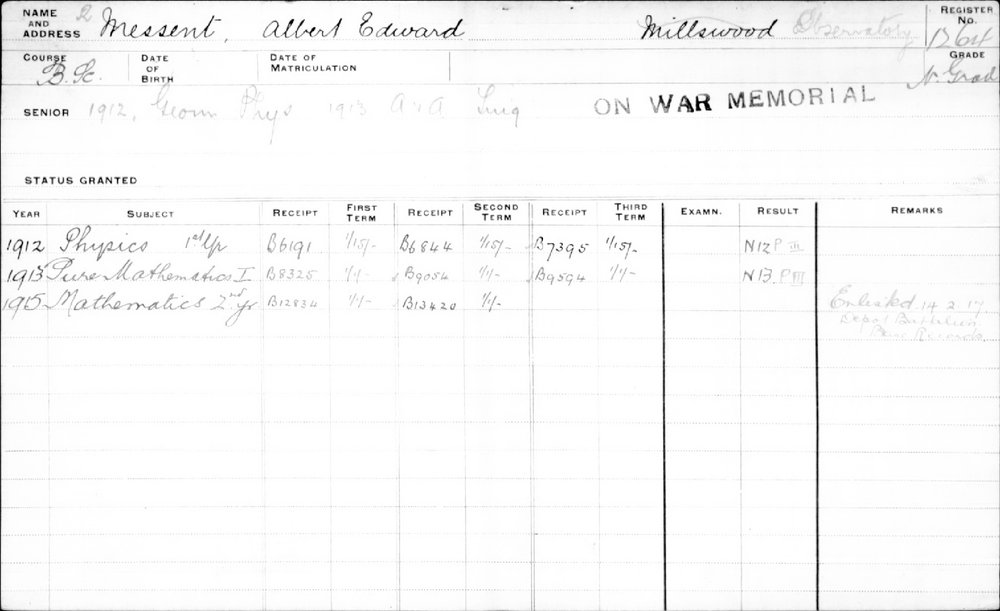 NAME AND ADDRESS 2 Messent, Albert Edward Millswood Observatory REGISTER No.
COURSE B.Sc. DATE OF BIRTH DATE OF MATRICULATION GRADE N. Grad
SENIOR 1912, Geom Phys 1913 ON WAR MEMORIAL
STATUS GRANTED
YEAR SUBJECT RECEIPT FIRST TERM RECEIPT SECOND TERM RECEIPT THIRD TERM EXAMN. RESULT REMARKS
1912 Physics 1st Yr B6191 1/15/- B6844 1/15/- B7395 1/15/- N12 P III
1913 Pure Mathematics I B8325 1/1/- B9054 1/1/- B9594 1/1/- N13 P III
1915 Mathematics 2nd yr B12834 1/1/- B13420 1/1/- Enlisted 14.2.17
Depot Battalion
Base Records